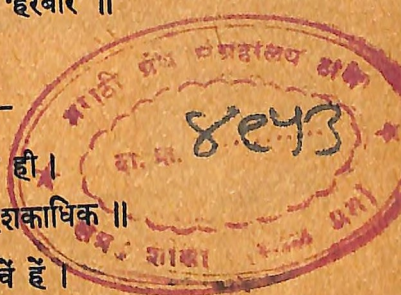 हरबार ॥
ही ।
शकाधिक ॥
वें हें ।
मराठी ग्रंथ संग्रहालय ठाणे
दा. क्र. ४९५३
शाखा